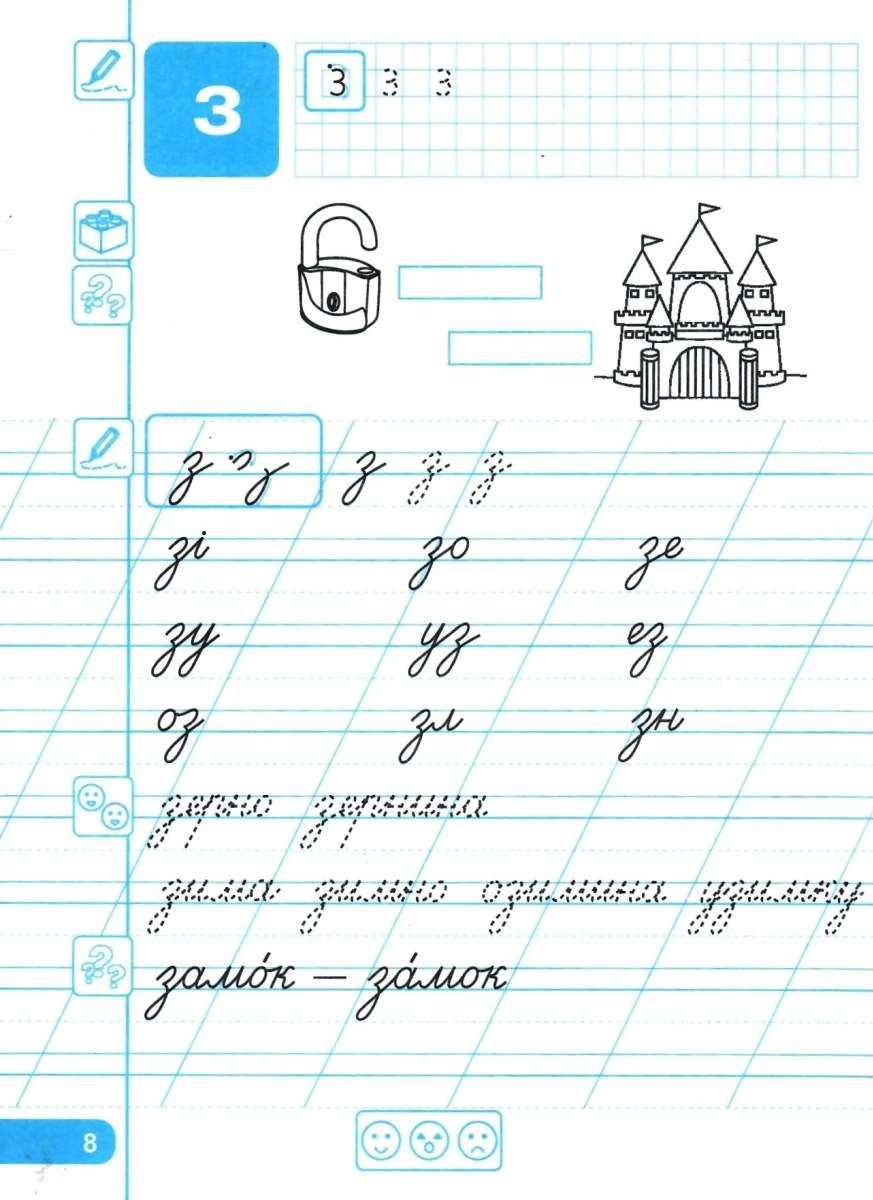 З
з з з
з з з з з
зі зо зе
зу уз ез
оз зл зн
зерно зернина
зима зимно озимина узимку
замо́к — за́мок
8